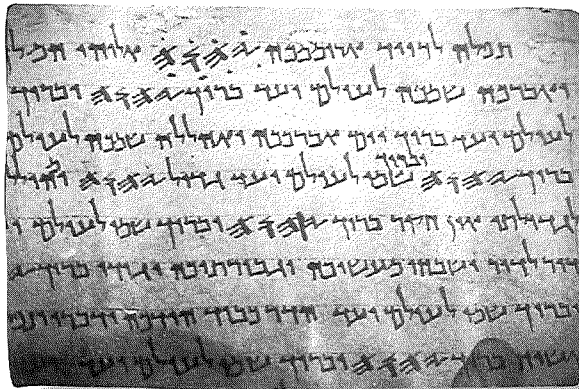 תפלה לדויד ארוממכה 𐤉𐤄𐤅𐤄 אלוהי המל
ואברכה שמכה לעולם ועד ברוך 𐤉𐤄𐤅𐤄 וברוך
לעולם ועד ברוך יום אברככה ואהללה שמכה לעולם
ברוך 𐤉𐤄𐤅𐤄 וברוך שמו לעולם ועד גדול 𐤉𐤄𐤅𐤄
לגדולתו אין חקר ברוך 𐤉𐤄𐤅𐤄 וברוך שמו לעולם ו
דור לדור ישבחו מעשיכה וגבורותיכה יגידו ברוך 𐤉
וברוך שמו לעולם ועד הדר כבוד הודכה ודברי
אשיח ברוך 𐤉𐤄𐤅𐤄 וברוך שמו לעולם ועד